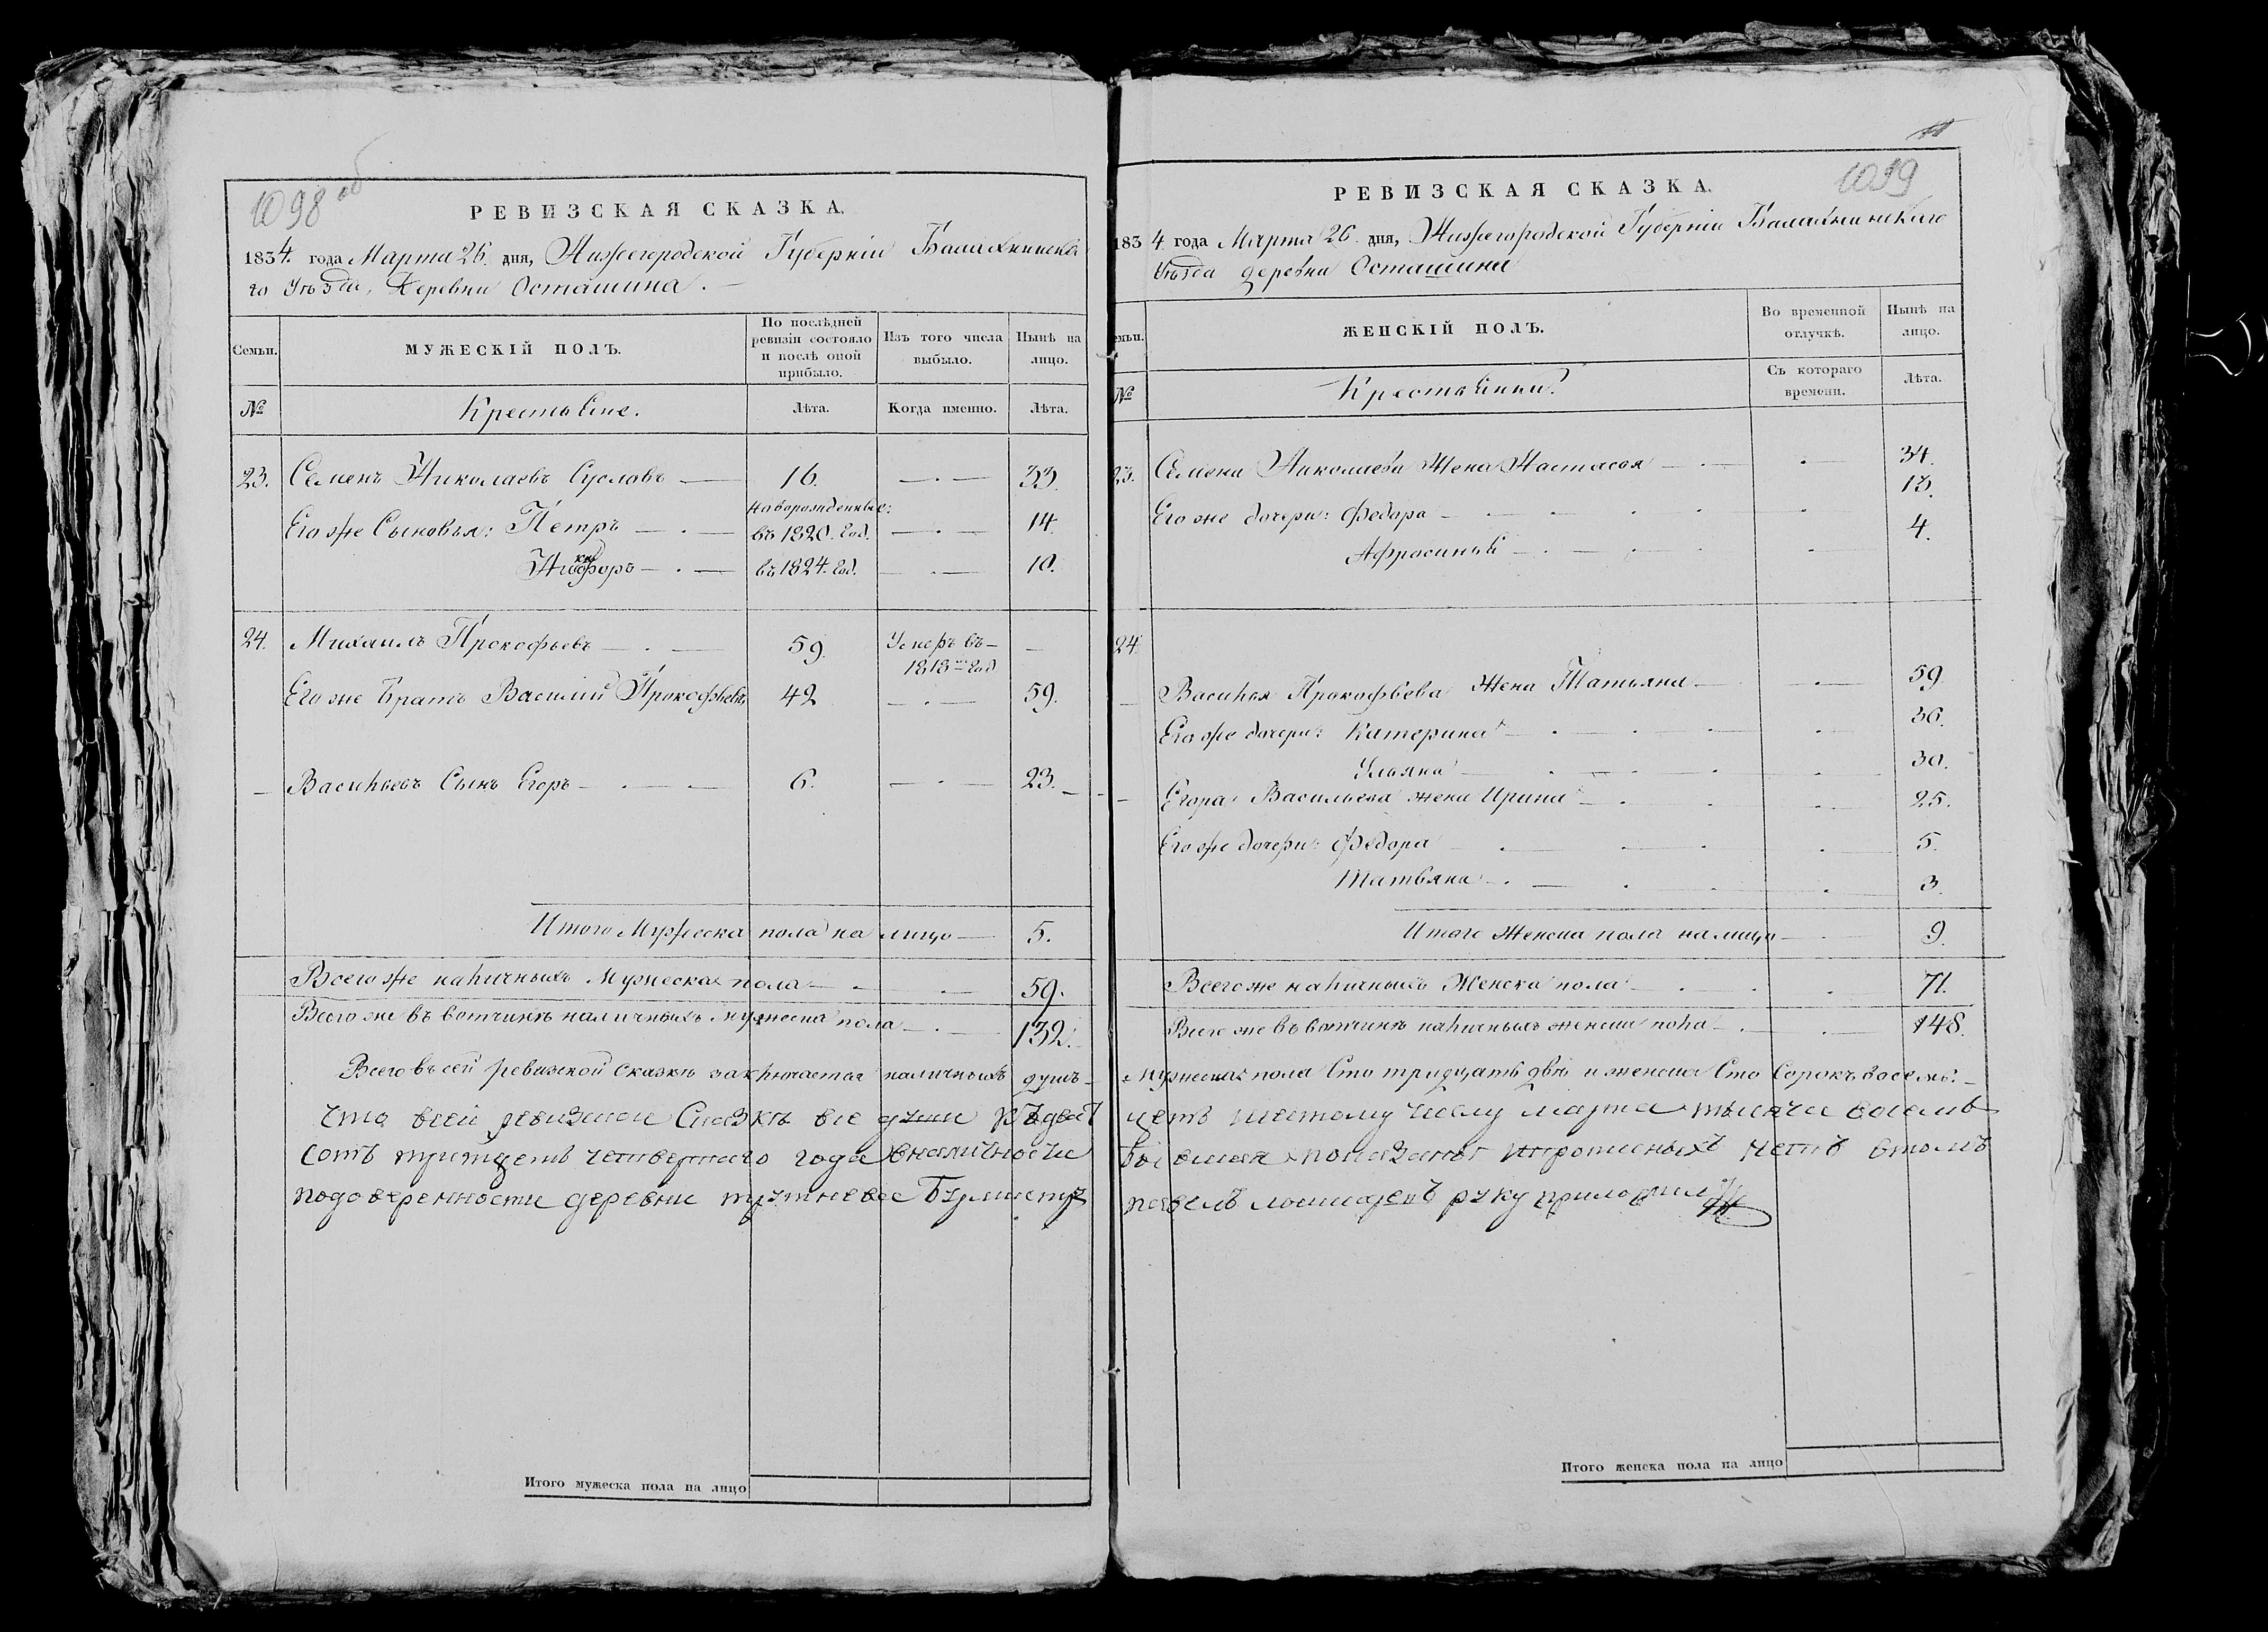 1098 об
РЕВИЗСКАЯ СКАЗКА.
1834. года Марта 26. дня, Нижегородской Губерніи Балахнинска
го Уѣзда, Деревни Осташина.
Семьи.
МУЖЕСКІЙ ПОЛЪ.
По послѣдней ревизіи состояло и послѣ оной прибыло.
Изъ того числа выбыло.
Нынѣ на лицо.
№
Крестьяне.
Лѣта.
Когда именно.
Лѣта.
23. Семенъ Николаевъ Сусловъ 16. 33.
новорожденные:
Его же Сыновья: Петръ въ 1820. год. 14.
Никифоръ въ 1824. год. 10.
24. Михаилъ Прокофьевъ 59. Умеръ въ
1818м год
Его же Братъ Василий Прокофьевъ 42 59.
Васильевъ Сынъ Егоръ 6. 23.
Итого Мужеска пола на лицо 5.
Всего же наличныхъ Мужеска пола 59.
Всего же въ вотчинѣ наличныхъ мужеска пола 132.
Всего въ сей ревизской сказкѣ заключается наличныхъ душъ
Что всей ревизской Сказкѣ все души
сотъ тритцеть четвертаго года вналичности
подоверенности деревни Бурмистръ
1099
РЕВИЗСКАЯ СКАЗКА.
1834 года Марта 26 дня, Нижегородской Губерніи Балахнинскаго
Уѣзда деревни Осташина
Семьи.
ЖЕНСКІЙ ПОЛЪ.
Во временной отлучкѣ.
Нынѣ на лицо.
№
Крестьянки.
Съ котораго времени.
Лѣта.
23. Семена Николаева Жена Настасья 34.
Его же дочери: Федора 13.
Афросинья 4.
24.
Василья Прокофьева Жена Татьяна 59.
Его же дочери: Катерина 36.
Ульяна 30.
Егора Васильева жена Ирина 25.
Его же дочери: Федора 5.
Татьяна 3.
Итого Женска пола налицо 9.
Всего же наличныхъ Женска пола 71.
Всего же въ вотчинѣ наличныхъ женска пола 148.
мужеска пола Сто тридцать двѣ и женска Сто Сорокъ восемь.
цеть шестому числу марта тысяча восемь
показаны ипрописныхъ нетъ втомъ
руку приложилъ
Итого мужеска пола на лицо
Итого женска пола на лицо